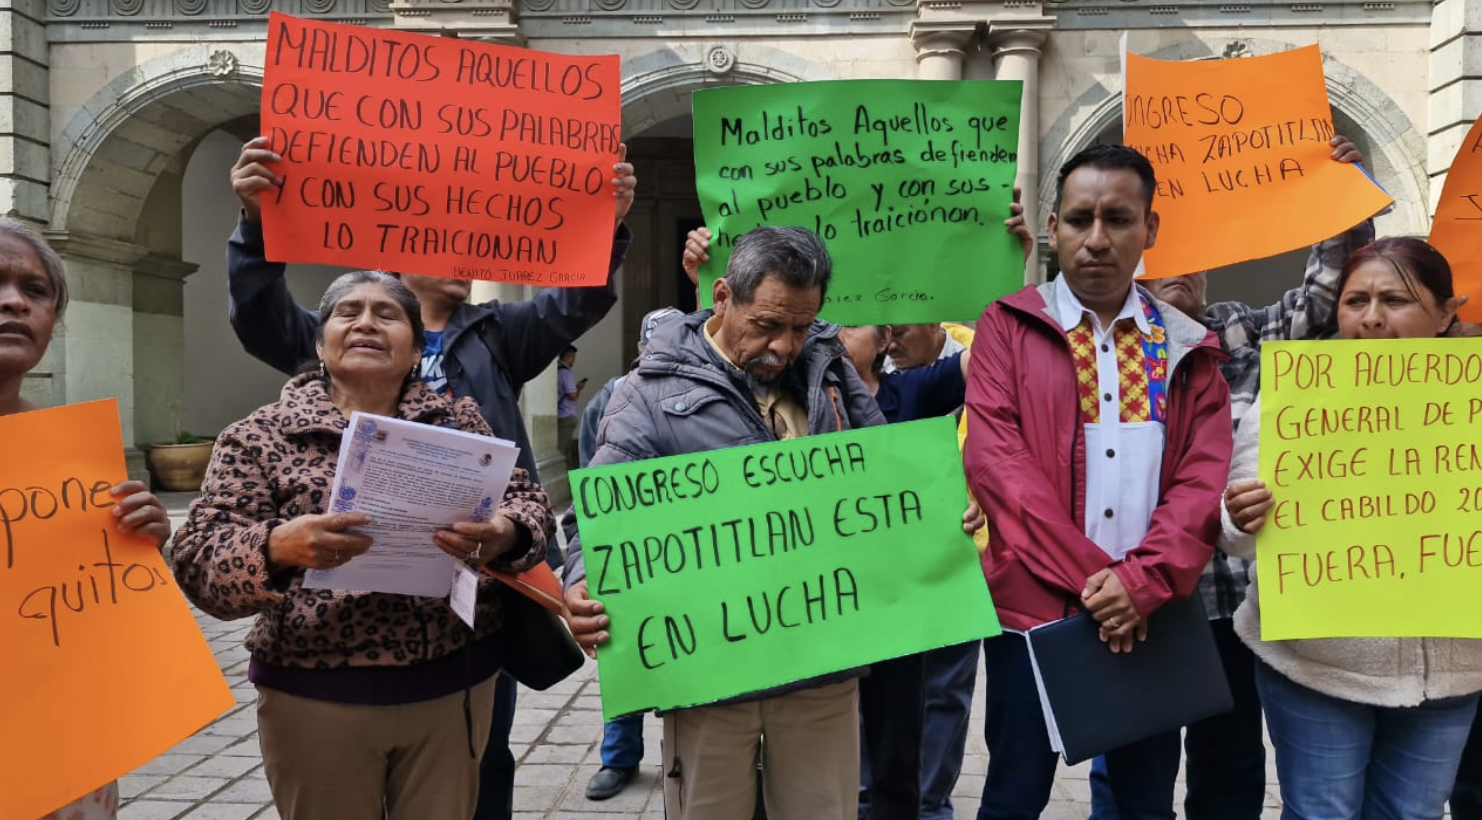 MALDITOS AQUELLOS
QUE CON SUS PALABRAS
DEFIENDEN AL PUEBLO
Y CON SUS HECHOS
LO TRAICIONAN
BENITO JUAREZ GARCIA
Malditos Aquellos que
con sus palabras defienden
al pueblo y con sus -
lo traiciónan.
Garcia.
ONGRESO
UCHA ZAPOTITLAN
EN LUCHA
pone
quitos
CONGRESO ESCUCHA
ZAPOTITLAN ESTA
EN LUCHA
POR ACUERDO
GENERAL DE
EXIGE LA REN
EL CABILDO 20
FUERA, FUE